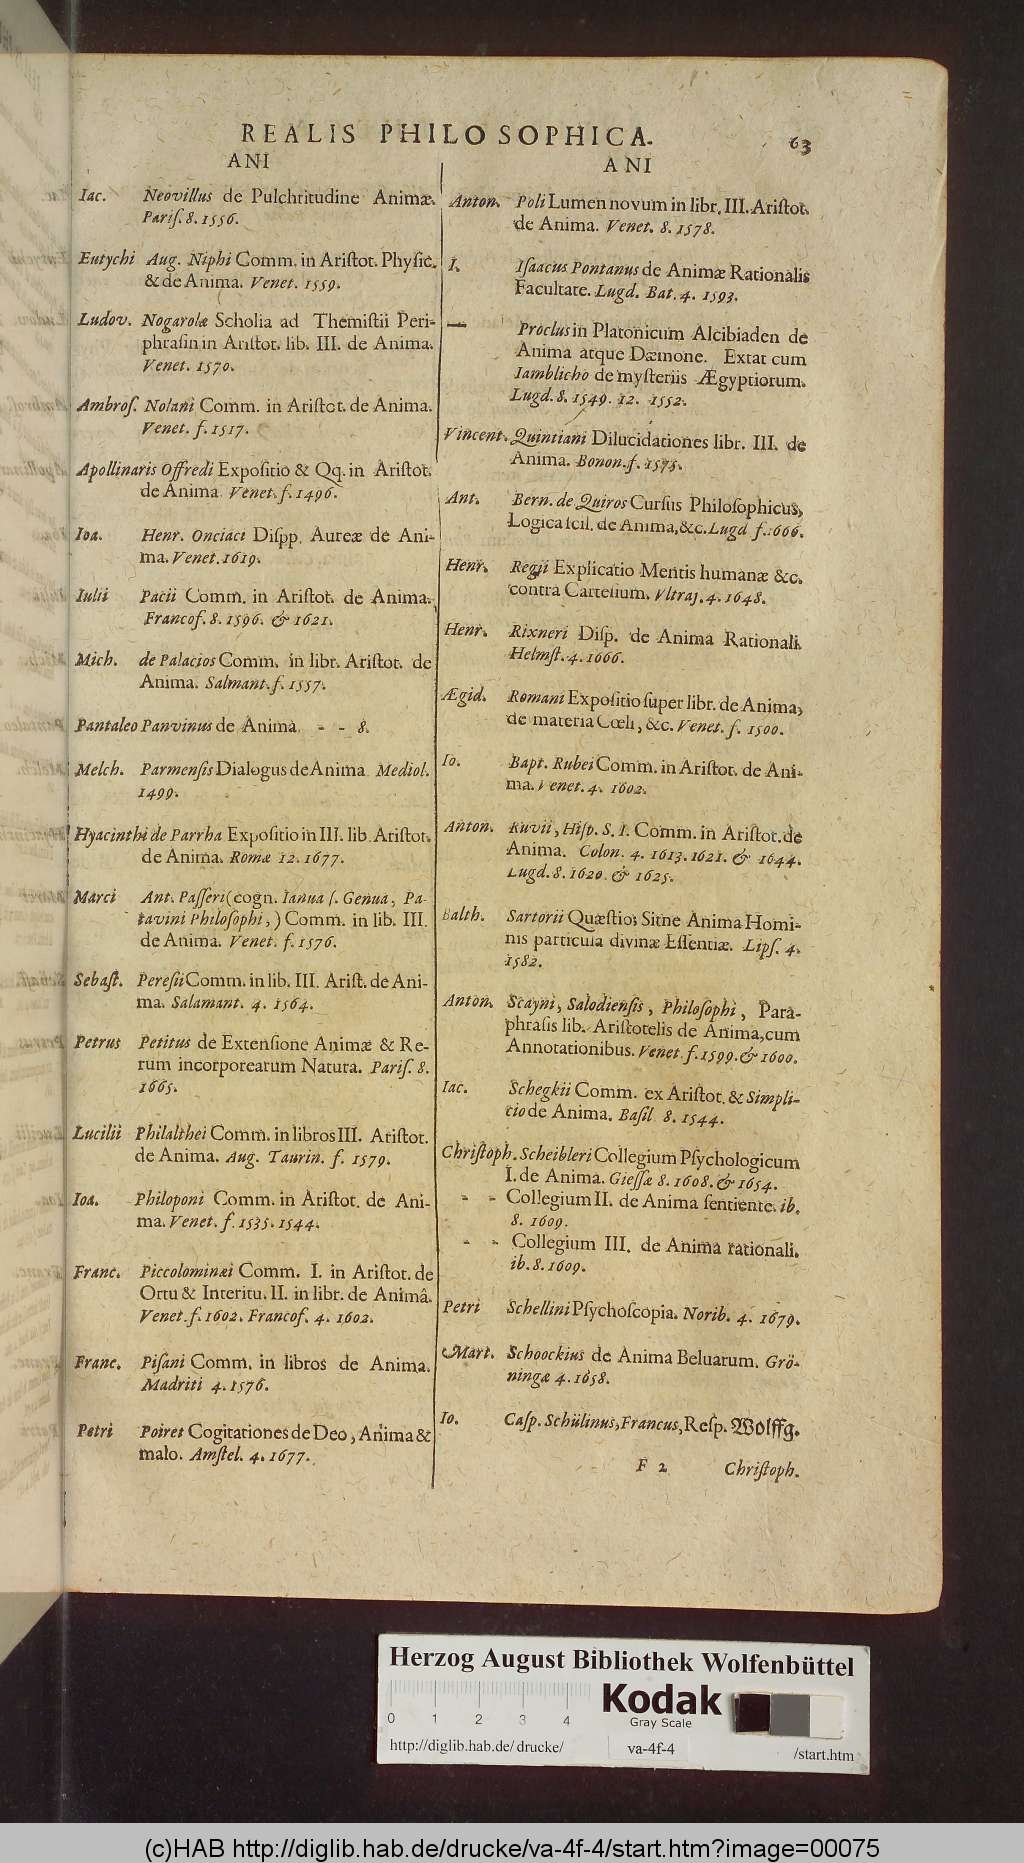 REALIS PHILOSOPHICA. 63
ANI
Iac. Neovillus de Pulchritudine Animæ.
Pariſ. 8. 1556.
Eutychi Aug. Niphi Comm. in Ariſtot. Phyſic.
& de Anima. Venet. 1559.
Ludov. Nogarolæ Scholia ad Themiſtii Peri-
phraſin in Ariſtot. lib. III. de Anima.
Venet. 1570.
Ambroſ. Nolani Comm. in Ariſtot. de Anima.
Venet. f. 1517.
Apollinaris Offredi Expoſitio & Qq. in Ariſtot.
de Anima. Venet. f. 1496.
Ioa. Henr. Onciaci Diſpp. Aureæ de Ani-
ma. Venet. 1619.
Iulii Pacii Comm. in Ariſtot. de Anima.
Francof. 8. 1596. & 1621.
Mich. de Palacios Comm. in libr. Ariſtot. de
Anima. Salmant. f. 1557.
Pantaleo Panvinus de Anima - - 8.
Melch. Parmenſis Dialogus de Anima. Mediol.
1499.
Hyacinthi de Parrha Expoſitio in III. lib. Ariſtot.
de Anima. Romæ 12. 1677.
Marci Ant. Paſſeri (cogn. Ianua ſ. Genua, Pa-
tavini Philoſophi,) Comm. in lib. III.
de Anima. Venet. f. 1576.
Sebaſt. Pereſii Comm. in lib. III. Ariſt. de Ani-
ma. Salamant. 4. 1564.
Petrus Petitus de Extenſione Animæ & Re-
rum incorporearum Natura. Pariſ. 8.
1665.
Lucilii Philalthei Comm. in libros III. Ariſtot.
de Anima. Aug. Taurin. f. 1579.
Ioa. Philoponi Comm. in Ariſtot. de Ani-
ma. Venet. f. 1535. 1544.
Franc. Piccolominæi Comm. I. in Ariſtot. de
Ortu & Interitu. II. in libr. de Animâ.
Venet. f. 1602. Francof. 4. 1602.
Franc. Piſani Comm. in libros de Anima.
Madriti 4. 1576.
Petri Poiret Cogitationes de Deo, Anima &
malo. Amſtel. 4. 1677.
ANI
Anton. Poli Lumen novum in libr. III. Ariſtot.
de Anima. Venet. 8. 1578.
I. Iſaacus Pontanus de Animæ Rationalis
Facultate. Lugd. Bat. 4. 1593.
— Proclus in Platonicum Alcibiaden de
Anima atque Dæmone. Extat cum
Iamblicho de myſteriis Ægyptiorum.
Lugd. 8. 1549. 12. 1552.
Vincent. Quintiani Dilucidationes libr. III. de
Anima. Bonon. f. 1575.
Ant. Bern. de Quiros Curſus Philoſophicus,
Logica ſcil. de Anima, &c. Lugd f. 1666.
Henr. Regii Explicatio Mentis humanæ &c.
contra Carteſium. Vltraj. 4. 1648.
Henr. Rixneri Diſp. de Anima Rationali.
Helmſt. 4. 1666.
Ægid. Romani Expoſitio ſuper libr. de Anima,
de materia Cœli, &c. Venet. f. 1500.
Io. Bapt. Rubei Comm. in Ariſtot. de Ani-
ma. Venet. 4. 1602.
Anton. Ruvii, Hiſp. S. I. Comm. in Ariſtot. de
Anima. Colon. 4. 1613. 1621. & 1644.
Lugd. 8. 1620. & 1625.
Balth. Sartorii Quæſtio; Sitne Anima Homi-
nis particula divinæ Eſſentiæ. Lipſ. 4.
1582.
Anton. Scayni, Salodienſis, Philoſophi, Para-
phraſis lib. Ariſtotelis de Anima, cum
Annotationibus. Venet. f. 1599. & 1600.
Iac. Schegkii Comm. ex Ariſtot. & Simpli-
cio de Anima. Baſil. 8. 1544.
Chriſtoph. Scheibleri Collegium Pſychologicum
I. de Anima. Gieſſæ 8. 1608. & 1654.
- - Collegium II. de Anima ſentiente. ib.
8. 1609.
- - Collegium III. de Anima rationali.
ib. 8. 1609.
Petri Schellini Pſychoſcopia. Norib. 4. 1679.
Mart. Schoockius de Anima Beluarum. Grö-
ningæ 4. 1658.
Io. Caſp. Schülinus, Francus, Reſp. Wolffg.
F 2 Chriſtoph.
Herzog August Bibliothek Wolfenbüttel
0 1 2 3 4
Kodak
Gray Scale
http://diglib.hab.de/drucke/ va-4f-4 /start.htm
(c)HAB http://diglib.hab.de/drucke/va-4f-4/start.htm?image=00075